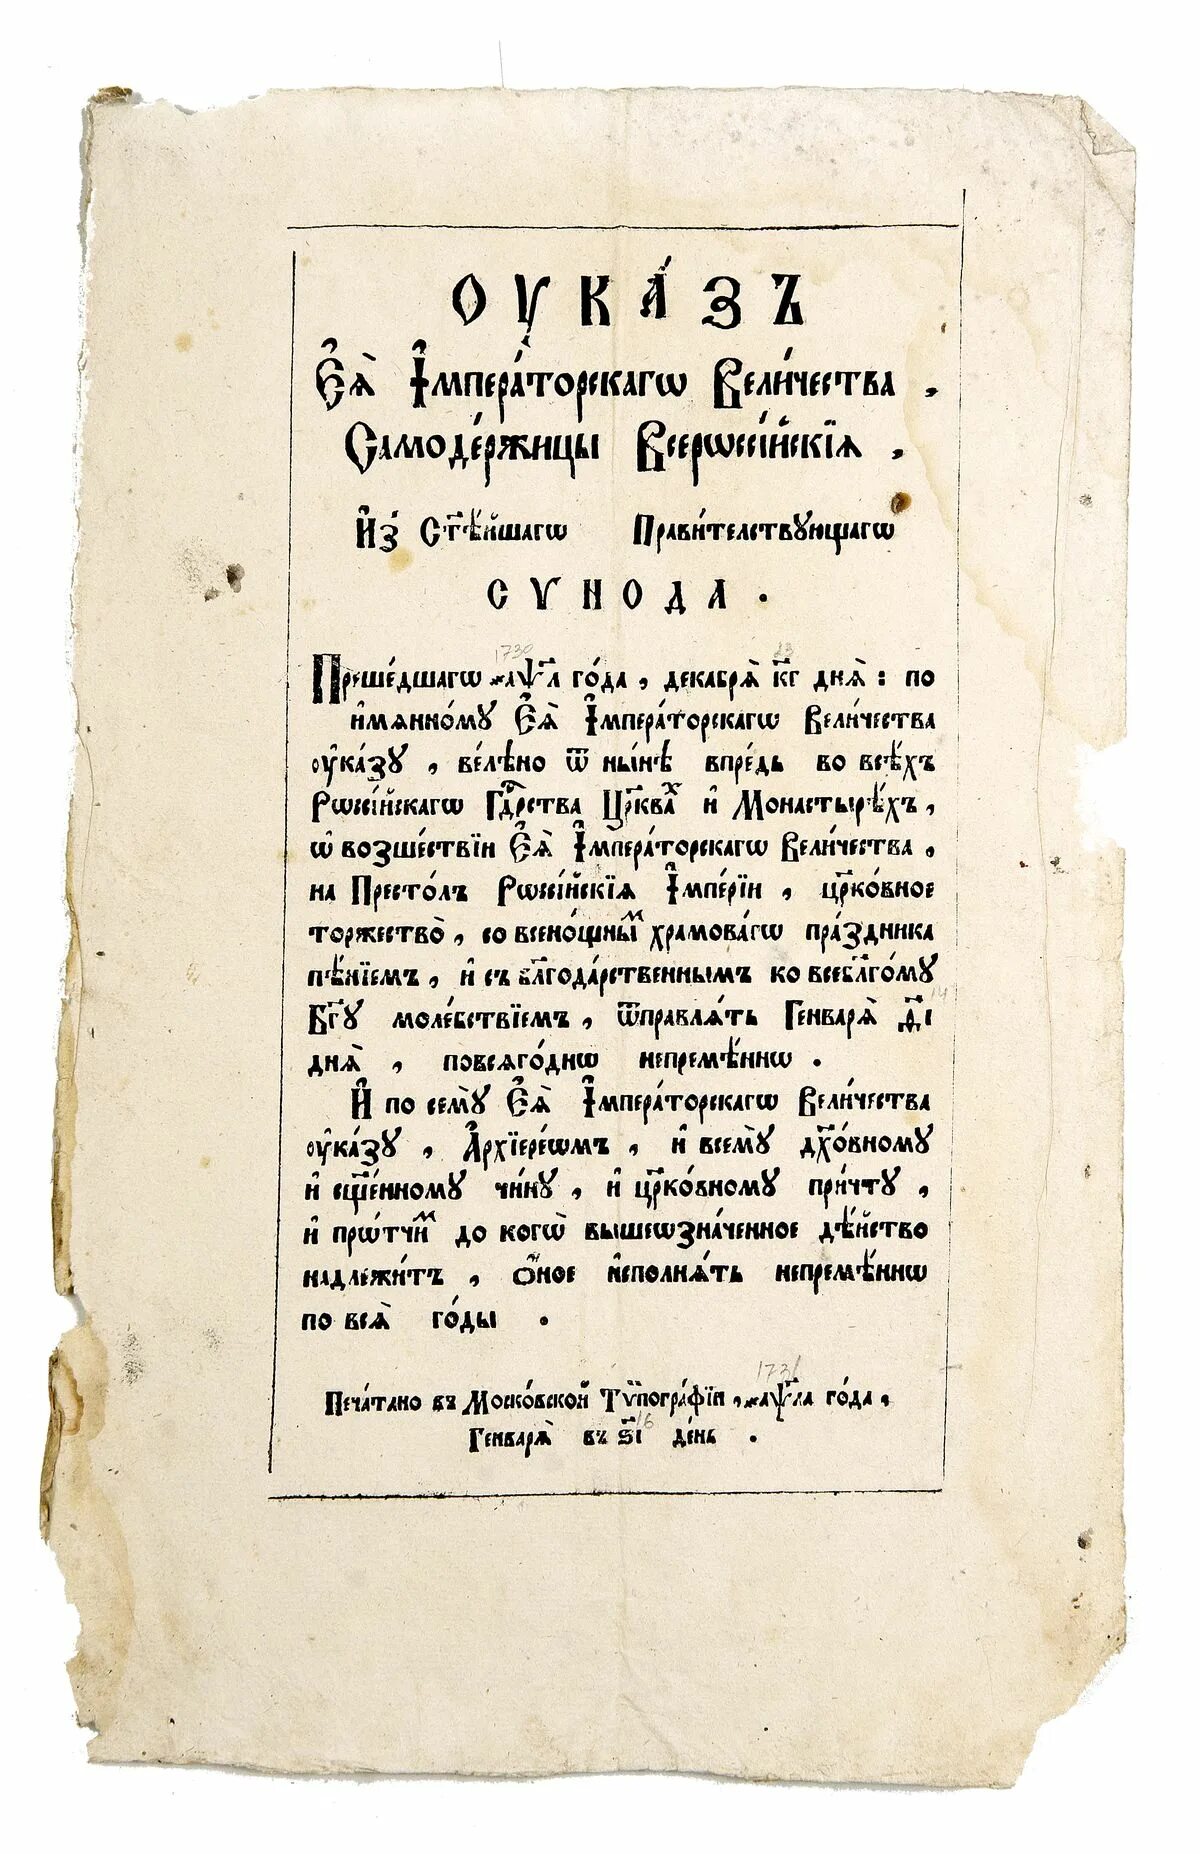 ОУКА́ЗЪ
Є҆Ѧ̀ И҆МПЕРА́ТОРСКАГѠ ВЕЛИ́ЧЕСТВА ,
САМОДЕ́РЖИЦЫ ВСЕРѠССІ́ЙСКІѦ ,
И҆З̾ СТ҃ѢЙШАГѠ ПРАВИ́ТЕЛСТВꙋЮЩАГѠ
СѴНОДА .
1730 23
Преше́дшагѡ ҂аѱ҃л го́да , декабрѧ̀ к҃г днѧ̀ : по
и҆мѧнно́мꙋ Є҆ѧ̀ І҆мпера́торскагѡ Вели́чества
ᲂу҆ка́зꙋ , веле́но ѿ ны́нѣ впре́дь во всѣ́хъ
Рѡссі́йскагѡ Гдⷭ҇рства Цр҃квахъ и҆ Монастырѣ́хъ ,
ѡ҆ возше́ствїи Є҆ѧ̀ І҆мпера́торскагѡ Вели́чества ,
на Престо́лъ Рѡссі́йскїѧ І҆мпе́рїи , цр҃ко́вное
торжество̀ , со всено́щнымъ храмова́гѡ пра́здника
пѣ́нїемъ , и҆ съ бл҃года́рственнымъ ко всебл҃го́мꙋ
Бг҃ꙋ моле́бствїемъ , ѿправлѧ́ть Генварѧ̀ д҃і 14
днѧ̀ , повсѧго́днѡ непремѣ́ннѡ .
И҆ по семꙋ̀ Є҆ѧ̀ І҆мпера́торскагѡ Вели́чества
ᲂу҆ка́зꙋ , А҆рхїере́ѡмъ , и҆ всемꙋ̀ дх҃о́вномꙋ
и҆ сщ҃е́нномꙋ чи́нꙋ , и҆ цр҃ко́вномꙋ при́чтꙋ ,
и҆ прѡ́тчимъ до когѡ̀ вышеѡзна́ченное дѣ́йство
надлежи́тъ , ѻ҆́ное и҆сполнѧ́ть непремѣ́ннѡ
по всѧ̀ го́ды .
1731
Печа́тано въ Моско́вской Тѷпогра́фїи , ҂аѱ҃ла го́да ,
Генварѧ̀ въ ѕ҃і 16 де́нь .